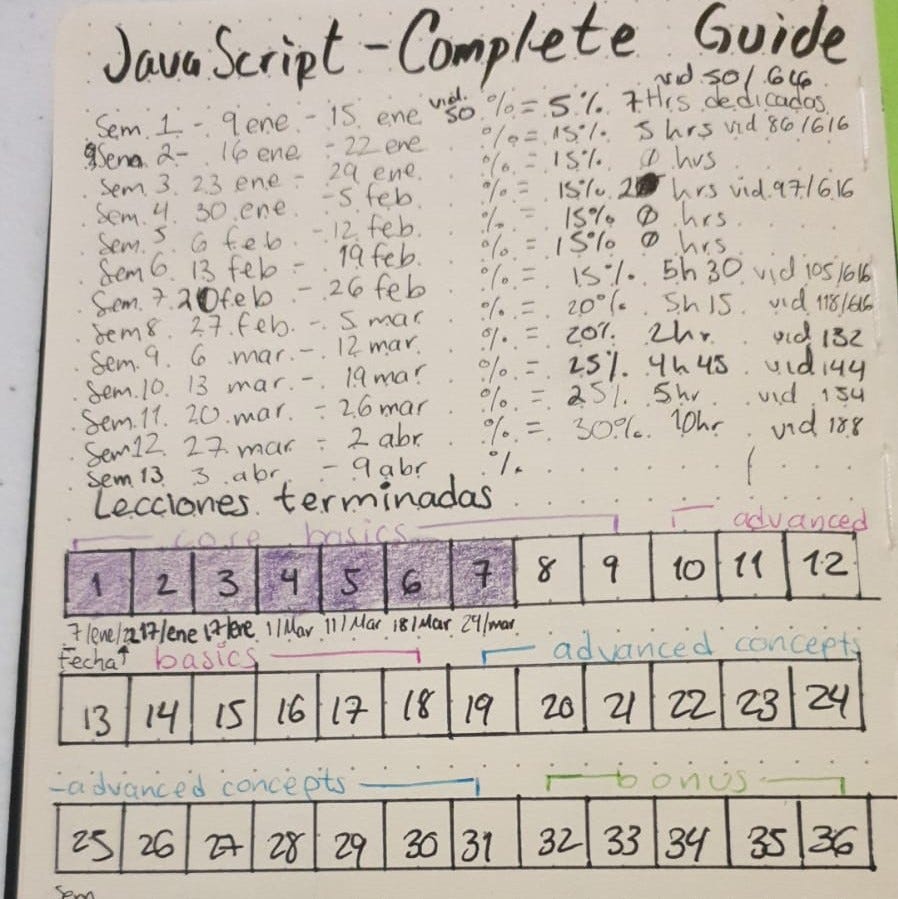 JavaScript - Complete Guide
vid 50/616
Sem. 1 - 9 ene - 15 ene vid. 50 % = 5% 7 Hrs dedicadas
Sem 2 - 16 ene - 22 ene % = 15% 5 hrs vid 86/616
Sem 3. 23 ene - 29 ene. % = 15% 0 hrs
Sem 4. 30 ene. - 5 feb % = 15% 2 hrs vid 97/616
Sem. 5 6 feb. - 12 feb. % = 15% 0 hrs.
Sem 6. 13 feb - 19 feb. % = 15% 0 hrs.
Sem. 7. 20 feb - 26 feb % = 15%. 5h 30 vid 105/616
Sem 8. 27. feb. - 5 mar % = 20%. 5h 15 vid 118/616
Sem. 9. 6 mar. - 12 mar. % = 20% 2hr. vid 132
Sem. 10. 13 mar. - 19 mar % = 25% 4h 45 vid 144
Sem. 11. 20. mar. - 26 mar % = 25% 5hr vid 154
Sem 12 27 mar - 2 abr % = 30% 10hr vid 188
Sem 13 3 abr - 9 abr %
Lecciones terminadas
core basics advanced
1 2 3 4 5 6 7 8 9 10 11 12
7/ene/22 17/ene 17/ene 1/Mar 11/Mar 18/Mar 29/mar
Fecha↑ basics advanced concepts
13 14 15 16 17 18 19 20 21 22 23 24
advanced concepts bonus
25 26 27 28 29 30 31 32 33 34 35 36
Sem